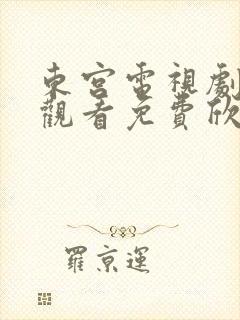 東宮電視劇
觀看免費欣
羅京運